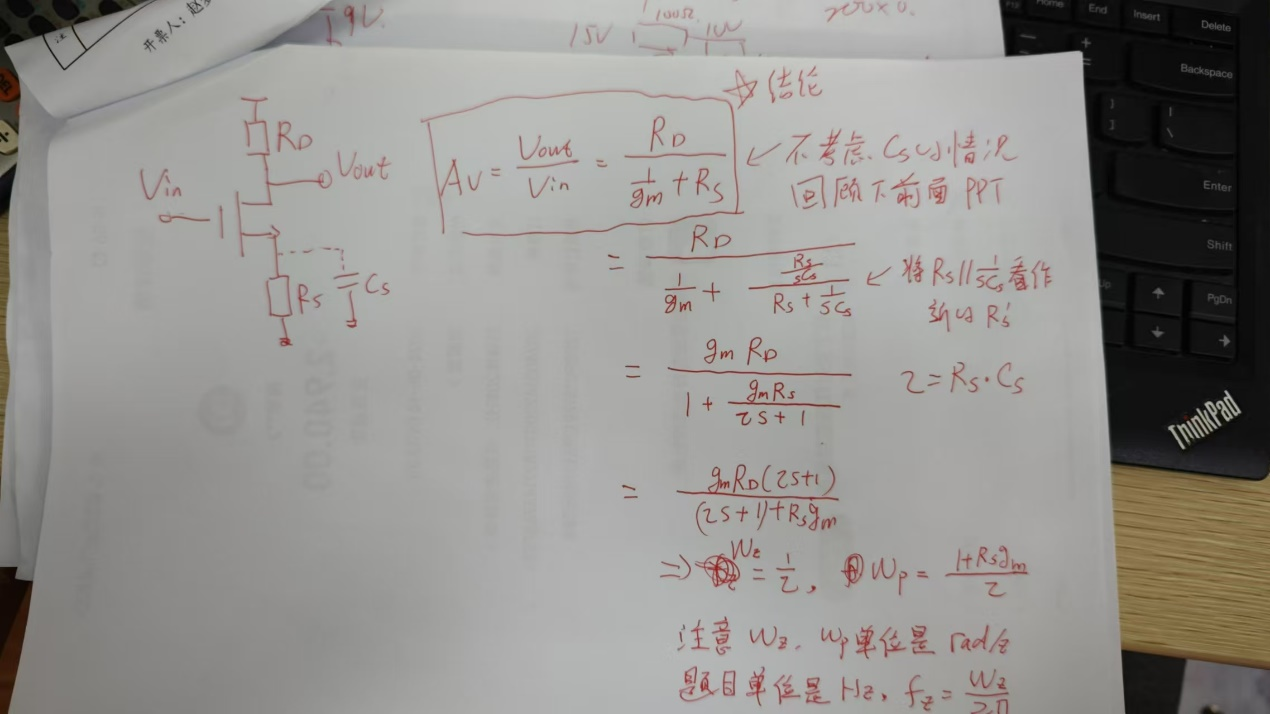 开票人：赵
15V
100Ω
10V
200x0.
Home
End
Insert
Delete
Backspace
Enter
Shift
PgDn
ThinkPad
☆ 结论
RD
Vout
Vin
Rs
Cs
Av = Vout/Vin = RD/(1/gm + Rs)
← 不考虑 Cs的情况
回顾下前面 PPT
= RD/(1/gm + (Rs/sCs)/(Rs + 1/sCs))
← 将 Rs//1/sCs 看作
新的 Rs'
= gm RD/(1 + gmRs/(τs + 1))
τ = Rs·Cs
= gmRD(τs+1)/((τs+1)+Rsgm)
⇒ Wz = 1/τ, Wp = (1+Rsgm)/τ
注意 Wz、Wp单位是 rad/z
题目单位是 Hz、fz = Wz/2π